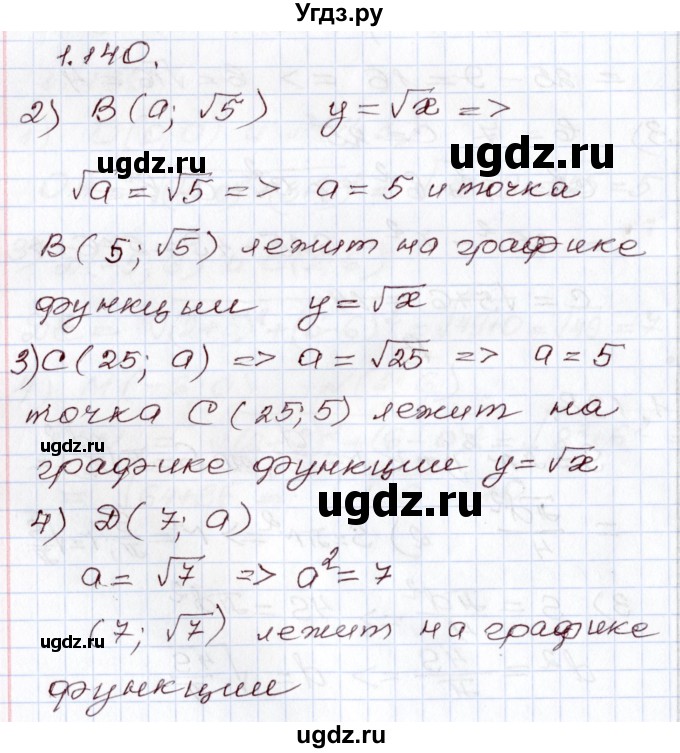 Угдз.ру
1.140.
2) B(a; √5) y=√x =>
ugdz.ru
√a = √5 => a = 5 и точка
ugdz.ru
B(5; √5) лежит на графике
функции y=√x
3) C(25; a) => a=√25 => a=5
точка C(25; 5) лежит на
ugdz.ru
графике функции y=√x
ugdz.ru
4) D(7; a)
a = √7 => a²=7
ugdz.ru
(7; √7) лежит на графике
функции
ugdz.ru